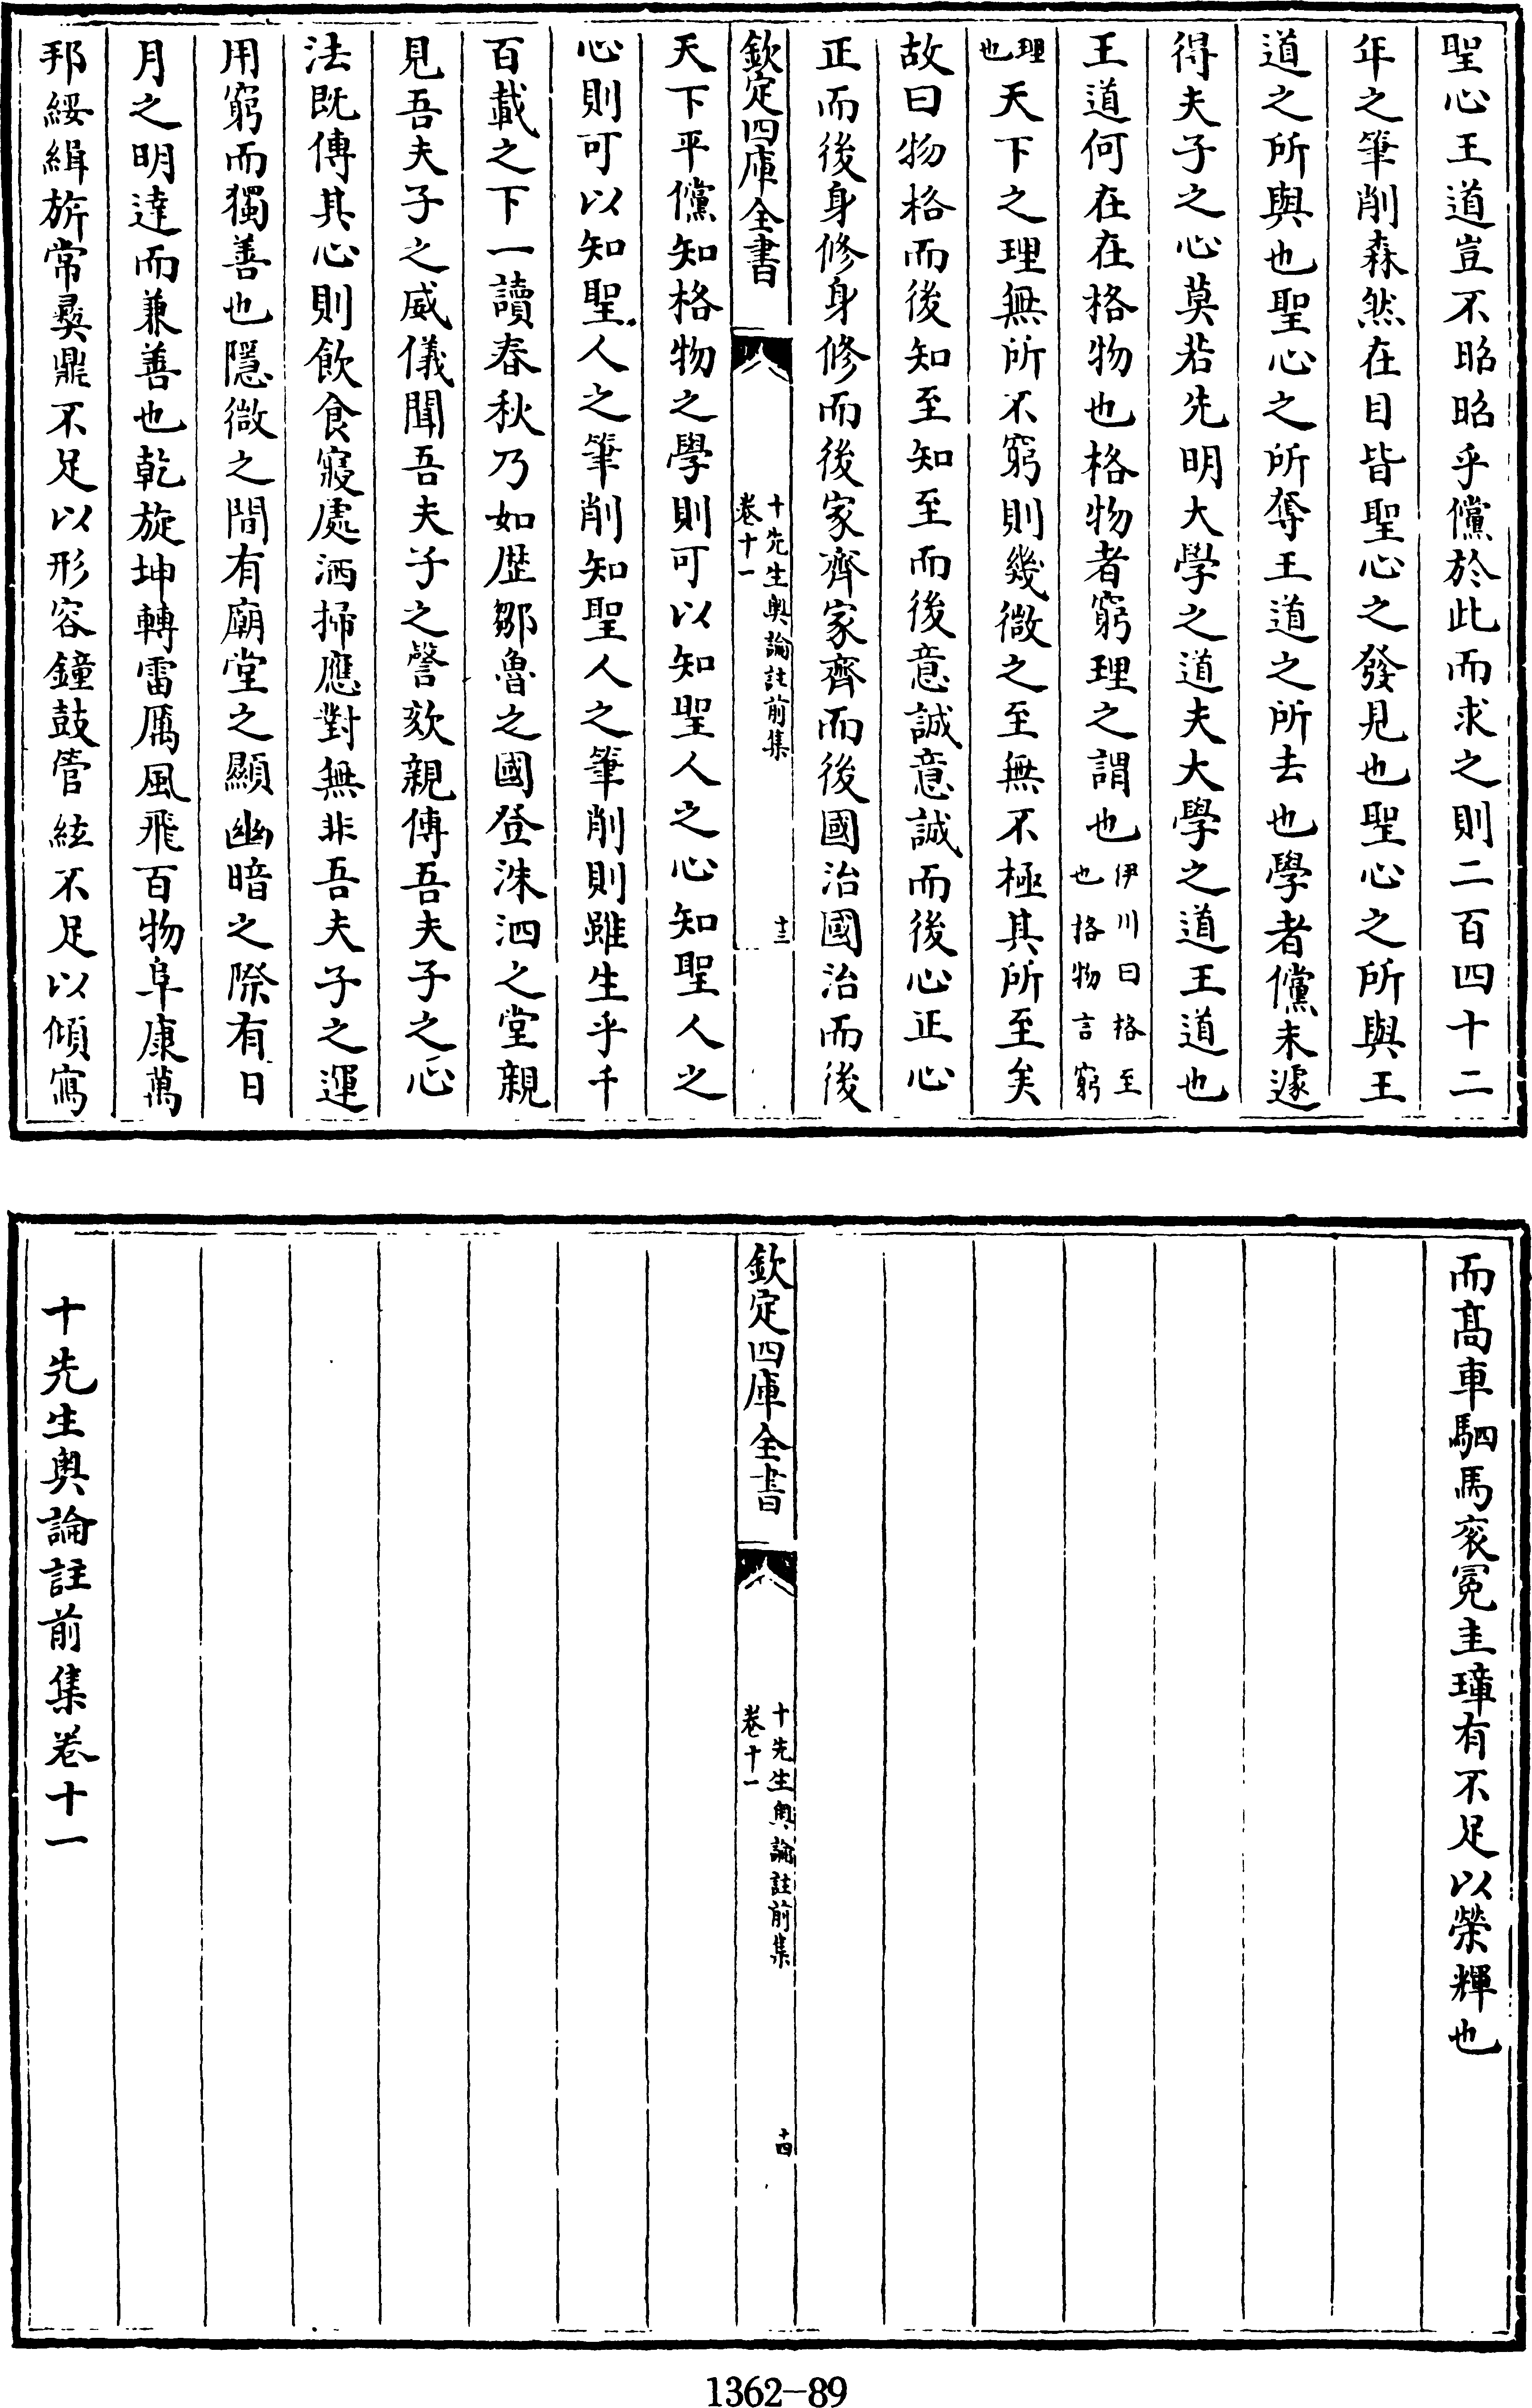 聖心王道豈不昭昭乎儻於此而求之則二百四十二
年之筆削森然在目皆聖心之發見也聖心之所與王
道之所與也聖心之所奪王道之所去也學者儻未遽
得夫子之心莫若先明大學之道夫大學之道王道也
王道何在在格物也格物者窮理之謂也伊川曰格至也格物言窮
理也天下之理無所不窮則幾微之至無不極其所至矣
故曰物格而後知至知至而後意誠意誠而後心正心
正而後身修身修而後家齊家齊而後國治國治而後
欽定四庫全書
十先生奧論註前集
卷十一
十三
天下平儻知格物之學則可以知聖人之心知聖人之
心則可以知聖人之筆削知聖人之筆削則雖生乎千
百載之下一讀春秋乃如歷鄒魯之國登洙泗之堂親
見吾夫子之威儀聞吾夫子之謦欬親傳吾夫子之心
法既傳其心則飲食寢處洒掃應對無非吾夫子之運
用窮而獨善也隱微之間有廟堂之顯幽暗之際有日
月之明達而兼善也乾旋坤轉雷厲風飛百物阜康萬
邦綏緝旂常彝鼎不足以形容鐘鼓管絃不足以傾寫
而髙車駟馬衮冕圭璋有不足以榮輝也
欽定四庫全書
十先生奧論註前集
卷十一
十四
十先生奧論註前集卷十一
1362-89